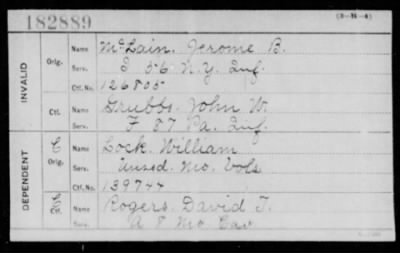 182889
(3-15-4)
INVALID
Orig.
Name McLain. Jerome B.
Serv. I 56 N.Y. Inf.
Ctf. No. 126805
Ctf.
Name Grubbs. John W.
Serv. F 87 Pa. Inf.
DEPENDENT
C
Orig.
Name Lock. William
Serv. Unasd. Mo. Vols
Ctf. No. 139744
Ctf.
Name Rogers. David T.
Serv. A 8 Mo Cav